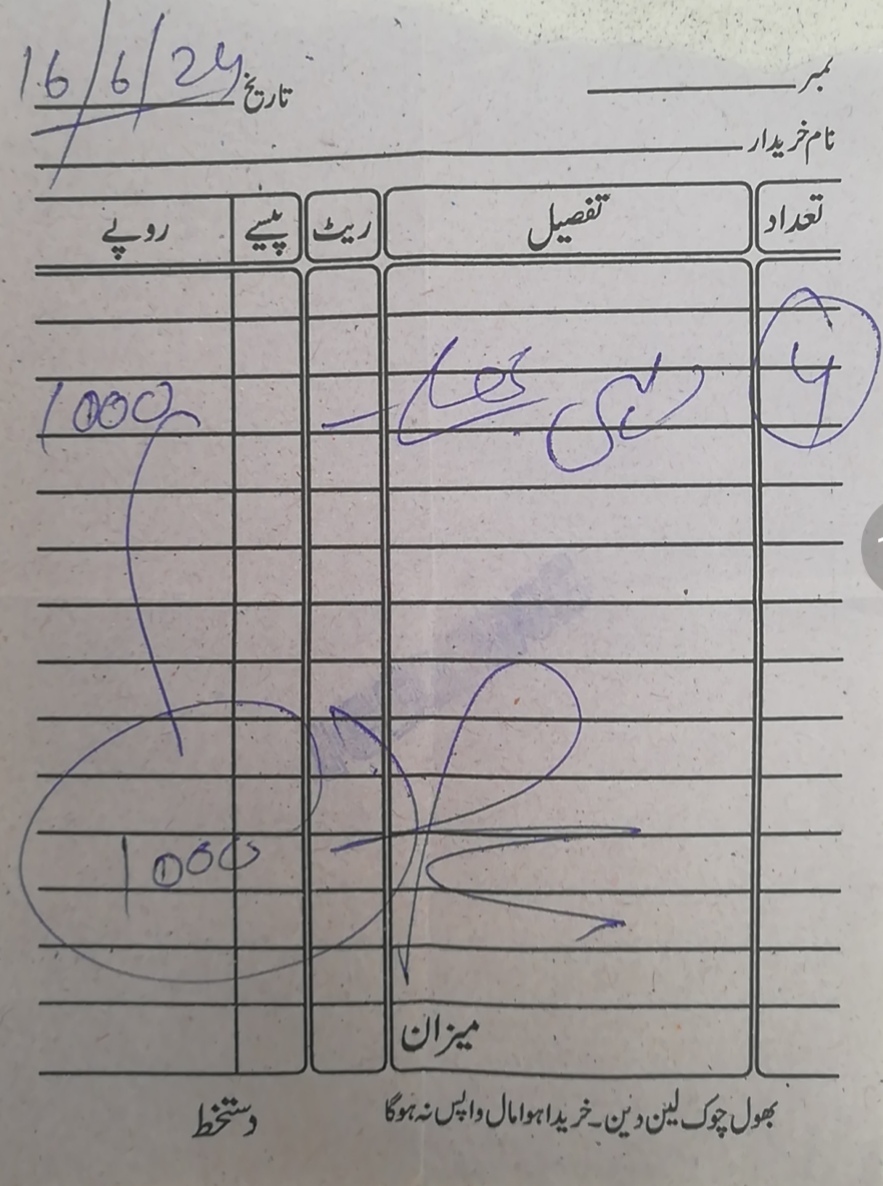 نمبر
تاریخ 16/6/24
نام خریدار
تعداد تفصیل ریٹ پیسے روپے
4 1000
1000
میزان
بھول چوک لین دین۔ خریدا ہوا مال واپس نہ ہوگا
دستخط